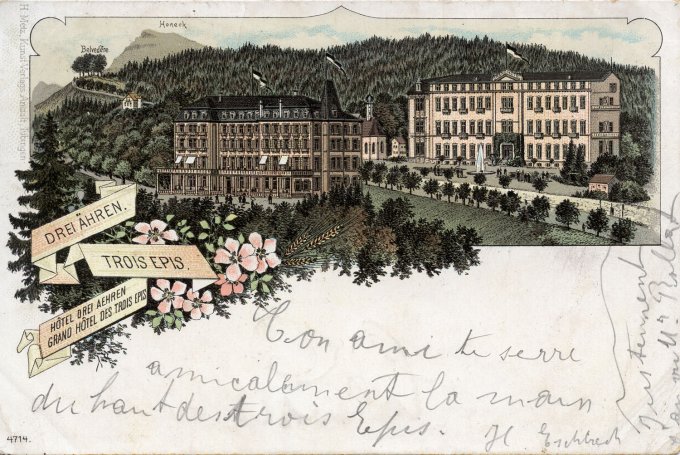 Honeck
Belvédère
H. Metz, Kunst-Verlags-Anstalt, Tübingen
DREI ÄHREN.
TROIS EPIS.
HÔTEL DREI AEHREN
GRAND HÔTEL DES TROIS EPIS
Ton ami te serre
amicalement la main
du haut des trois Epis.
H Eschbach
Justement
ami
4714.